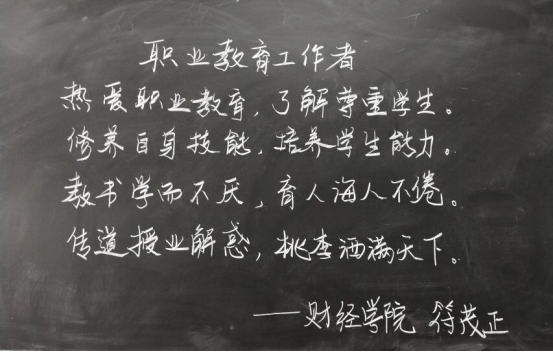 职业教育工作者
热爱职业教育，了解尊重学生。
修养自身技能，培养学生能力。
教书学而不厌，育人诲人不倦。
传道授业解惑，桃李洒满天下。
——财经学院 符茂正